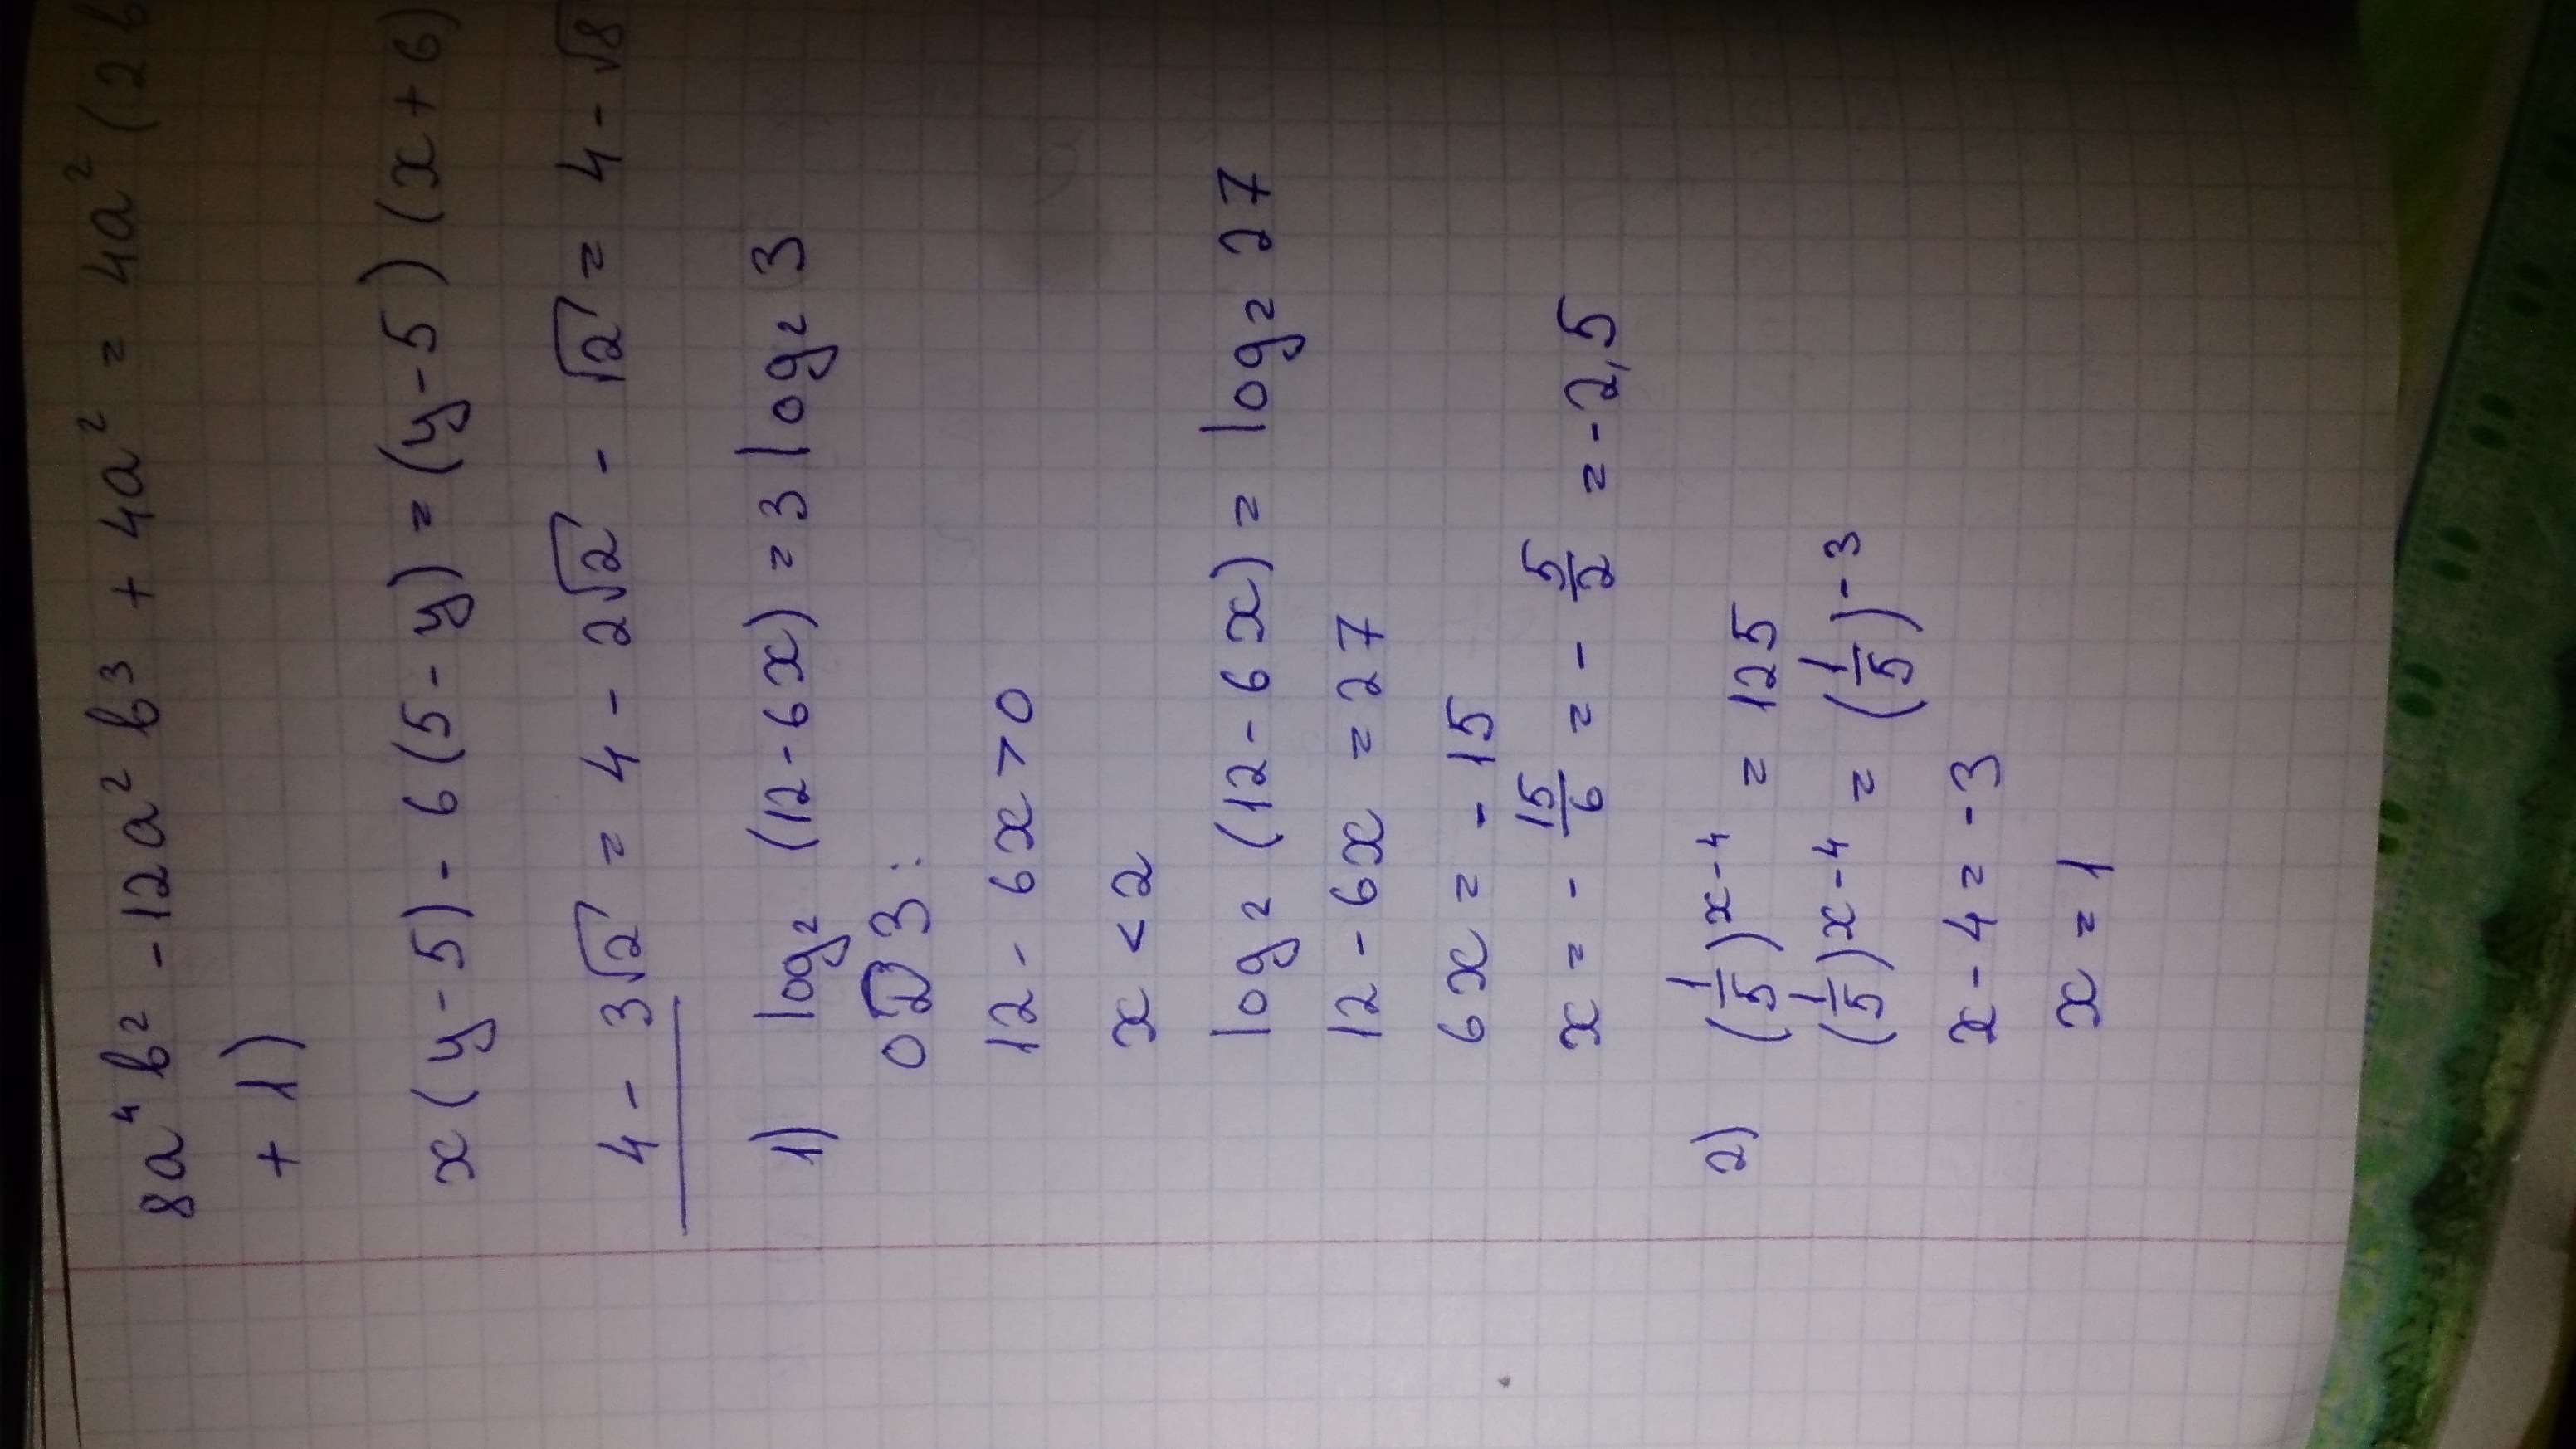 8a⁴b² - 12a²b³ + 4a² = 4a² (2b
+ 1)
x(y-5) - 6(5-y) = (y-5)(x+6)
4 - 3√2 = 4 - 2√2 - √2 = 4 - √8
1) log₂ (12-6x) = 3 log₂ 3
ОДЗ:
12 - 6x > 0
x < 2
log₂ (12-6x) = log₂ 27
12 - 6x = 27
6x = -15
x = - 15/6 = - 5/2 = -2,5
2) (1/5)ˣ⁻⁴ = 125
(1/5)ˣ⁻⁴ = (1/5)⁻³
x - 4 = -3
x = 1